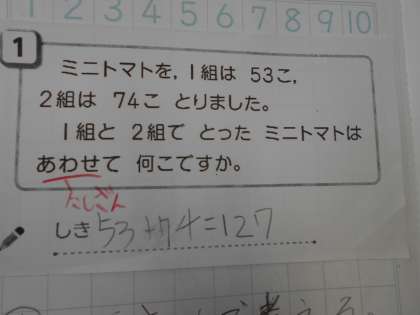 1 2 3 4 5 6 7 8 9 10
1
ミニトマトを,1組は 53こ,
2組は 74こ とりました。
1組と 2組で とった ミニトマトは
あわせて 何こですか。
たしざん
しき 53+74=127